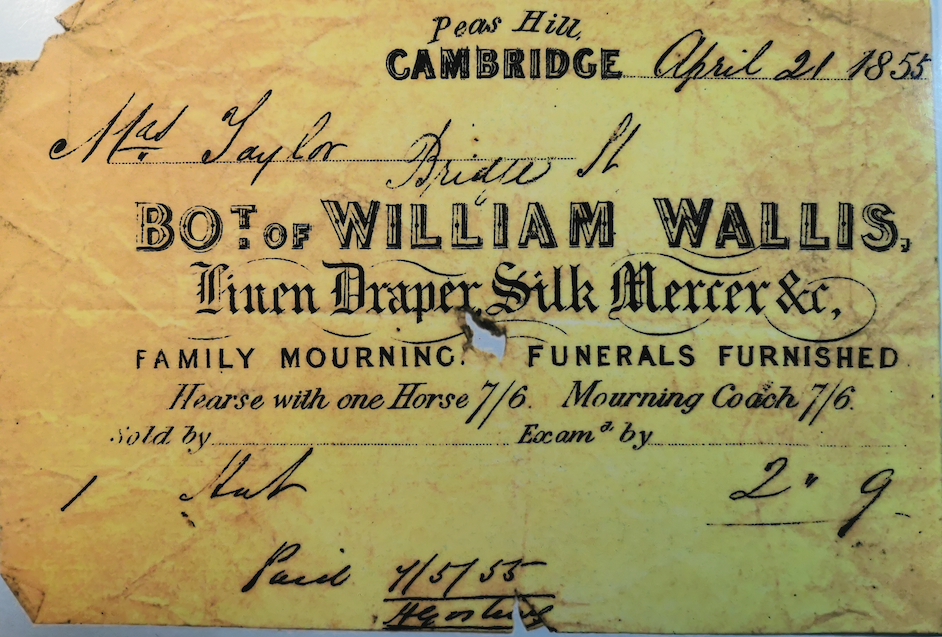 Peas Hill,
CAMBRIDGE April 21 1855
Mrs Taylor Bridge St
BOT. OF WILLIAM WALLIS,
Linen Draper, Silk Mercer &c,
FAMILY MOURNING. FUNERALS FURNISHED
Hearse with one Horse 7/6. Mourning Coach 7/6.
Sold by Examd. by
1 Hat 2 " 9
Paid 7/5/55